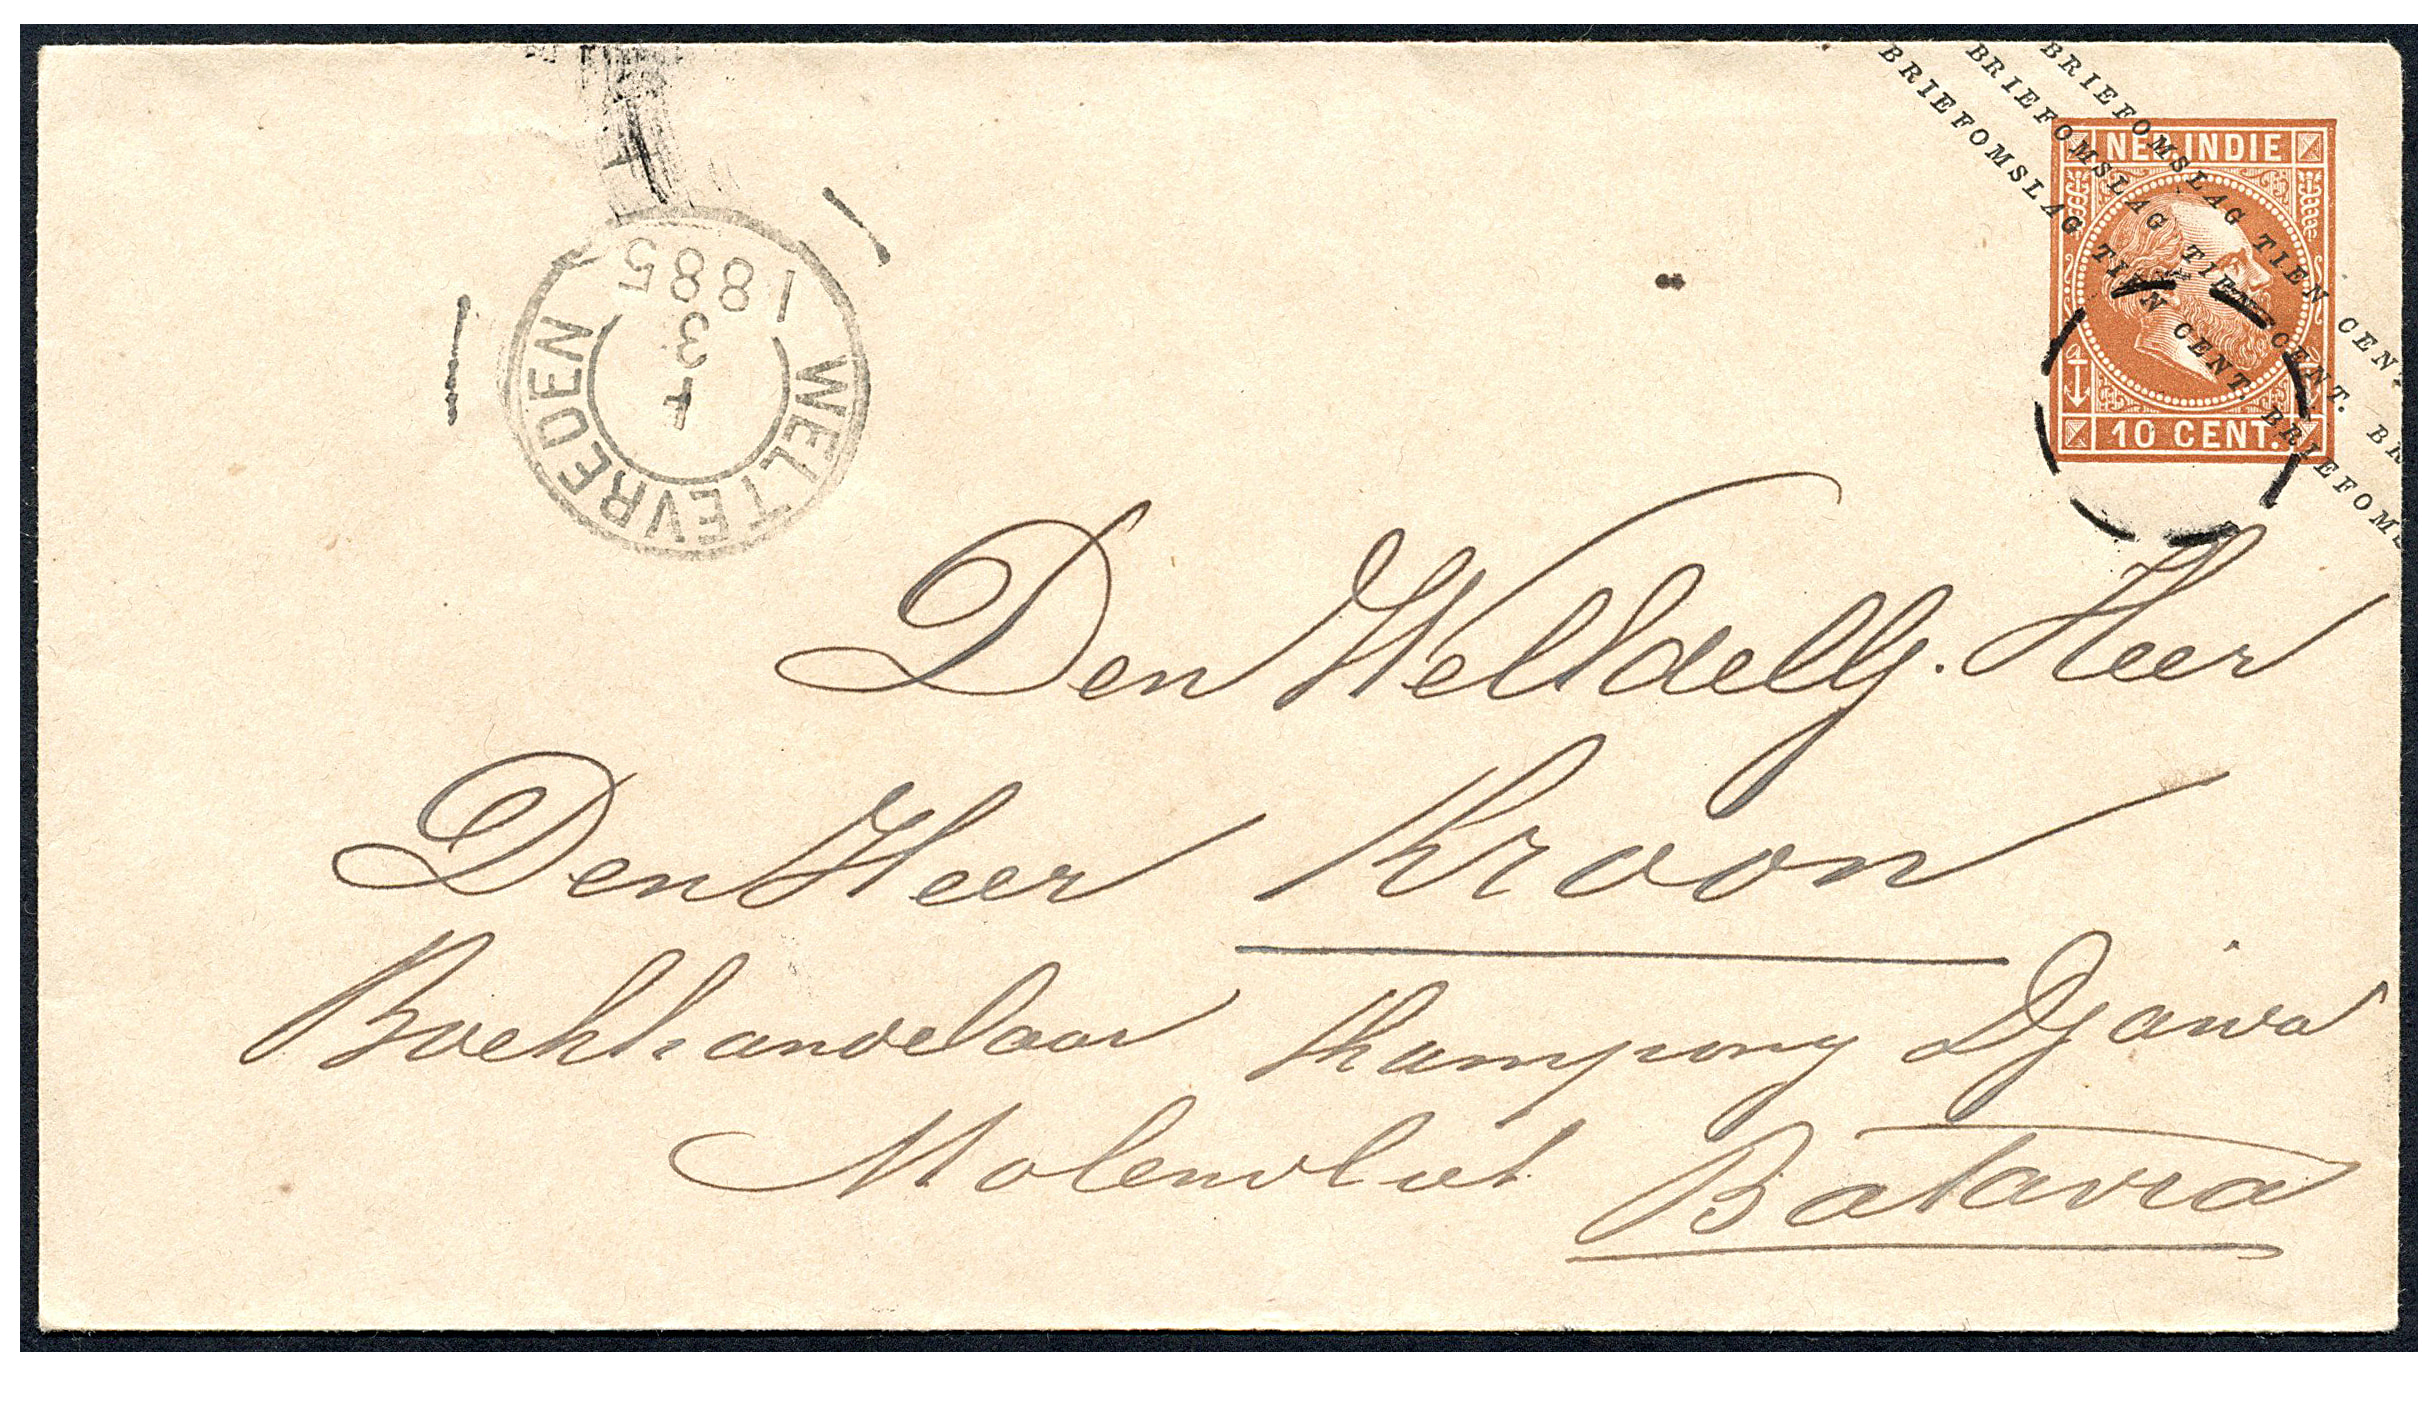 BRIEFOMSLAG TIEN CENT
BRIEFOMSLAG TIEN CENT. BR
BRIEFOMSLAG TIEN CENT. BRIEFOMS
NED. INDIE
10 CENT.
WELTEVREDEN
4
3
1885
Den WelEdelG. Heer
Den Heer Kroon
Boekhandelaar Kampong Djawa
Molenvliet Batavia